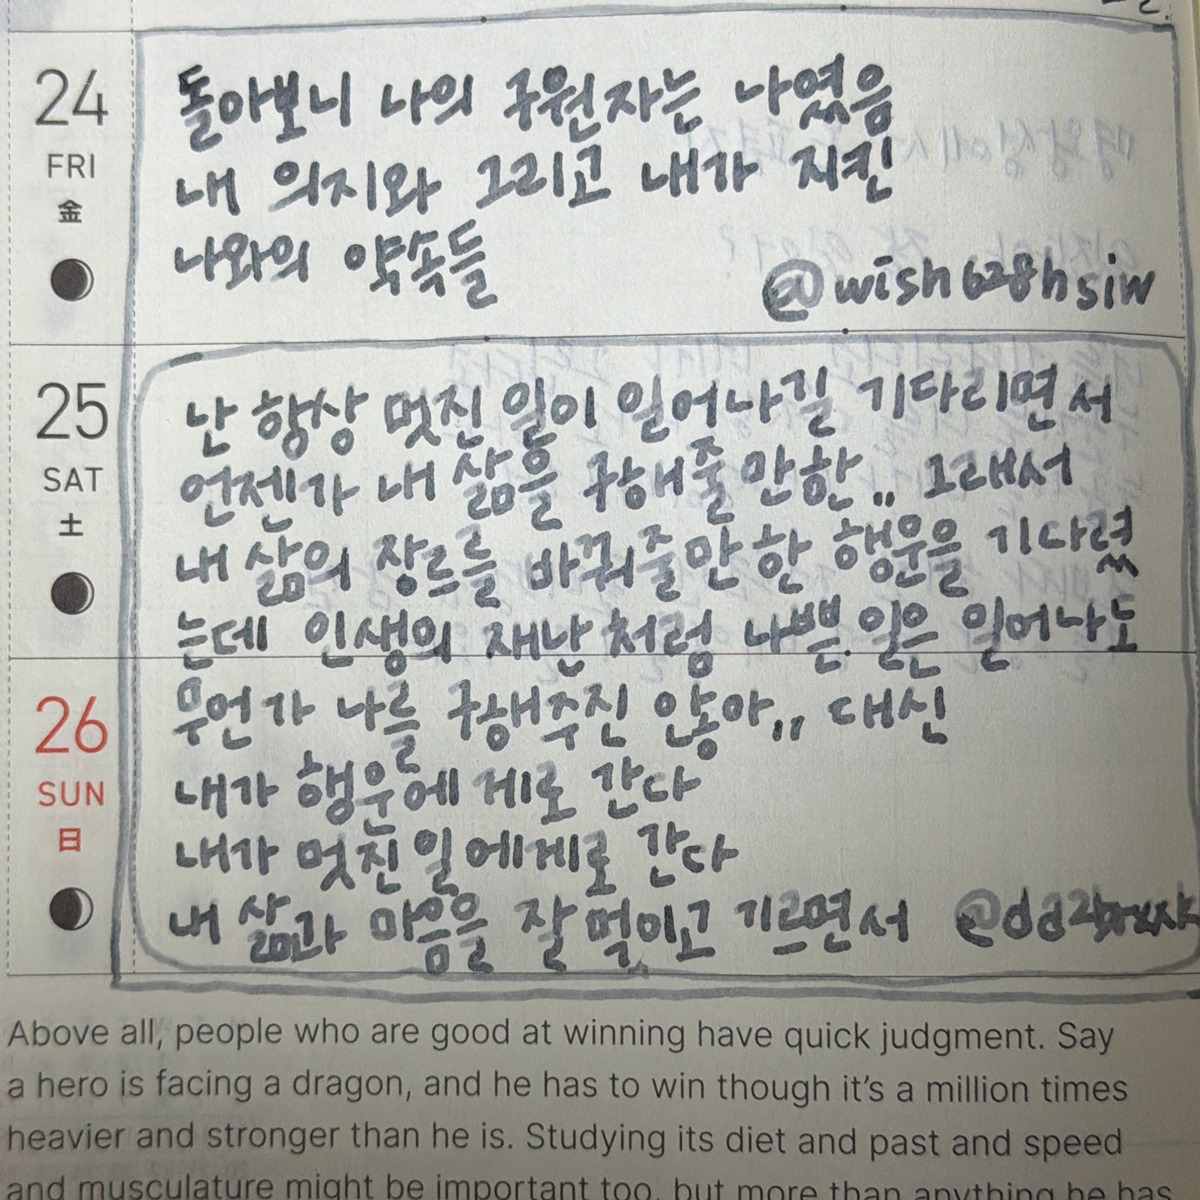 24
FRI
金
돌아보니 나의 구원자는 나였음
내 의지와 그리고 내가 지킨
나와의 약속들
@wish628hsiw
25
SAT
土
난 항상 멋진 일이 일어나길 기다리면서
언젠가 내 삶을 구해줄 만한,, 그래서
내 삶의 장르를 바꿔줄만 한 행운을 기다렸
는데 인생의 재난처럼 나쁜 일은 일어나도
무언가 나를 구해주진 않아,, 대신
26
SUN
日
내가 행운에게로 간다
내가 멋진 일에게로 간다
내 삶과 마음을 잘 먹이고 기르면서
Above all, people who are good at winning have quick judgment. Say
a hero is facing a dragon, and he has to win though it's a million times
heavier and stronger than he is. Studying its diet and past and speed
and musculature might be important too, but more than anything he has